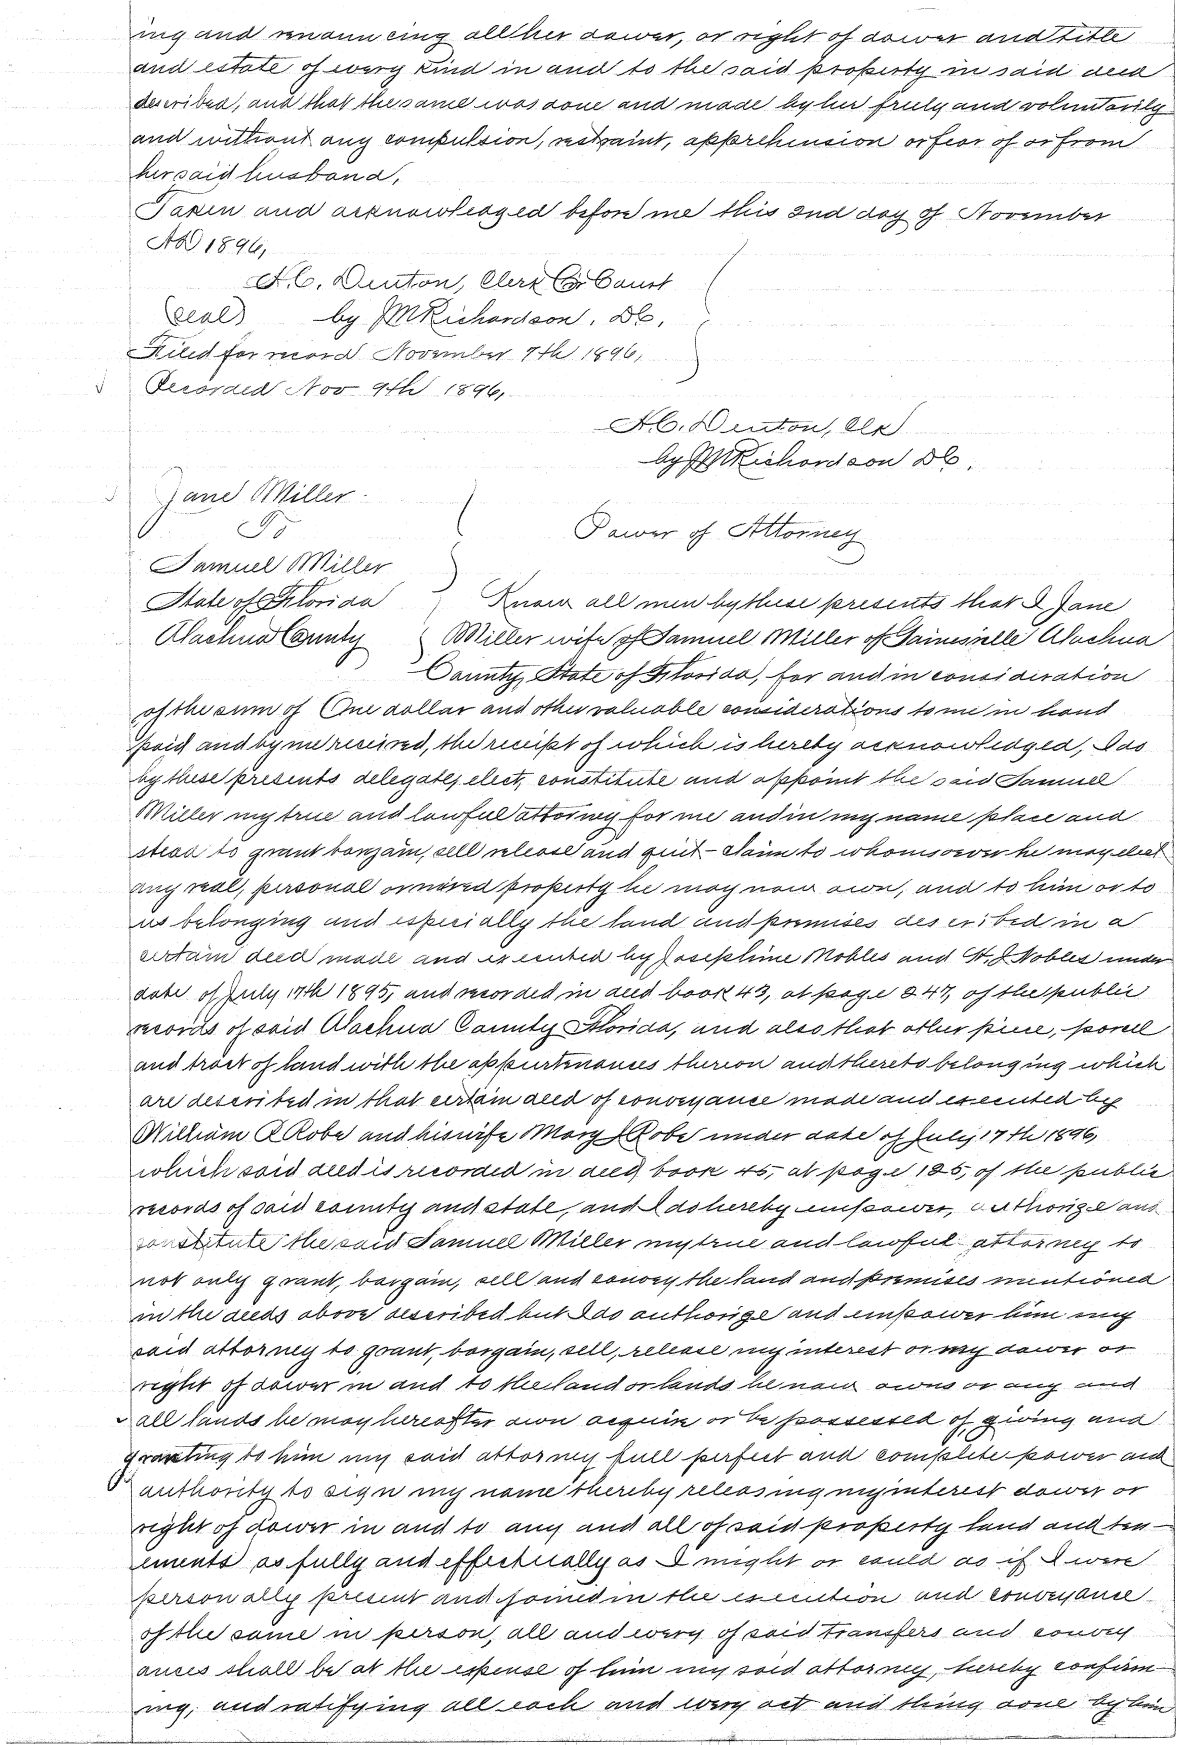 ing and renouncing all her dower, or right of dower and title
and estate of every kind in and to the said property in said deed
described, and that the same was done and made by her freely and voluntarily
and without any compulsion, restraint, apprehension or fear of or from
her said husband,
Taken and acknowledged before me this 2nd day of November
AD 1896,
H.C. Denton, Clerk Cir Court
(seal) by JMRichardson, DC,
Filed for record November 7th 1896,
Recorded Nov 9th 1896,
H.C. Denton, Clk
by JMRichardson DC,
Jane Miller
To
Power of Attorney
Samuel Miller
State of Florida Know all men by these presents that I Jane
Alachua County Miller wife of Samuel Miller of Gainesville Alachua
County, State of Florida, for and in consideration
of the sum of One dollar and other valuable considerations to me in hand
paid and by me received, the receipt of which is hereby acknowledged, I do
by these presents delegate, elect, constitute and appoint the said Samuel
Miller my true and lawful attorney for me and in my name place and
stead to grant bargain, sell release and quit-claim to whomsoever he may elect
any real, personal or mixed property he may now own, and to him or to
us belonging and especially the land and premises described in a
certain deed made and executed by Josephine Nobles and H. J. Nobles under
date of July 17th 1895, and recorded in deed book 43, at page 247, of the public
records of said Alachua County Florida, and also that other piece, parcel
and tract of land with the appurtenances thereon and thereto belonging which
are described in that certain deed of conveyance made and executed by
William R Robe and his wife Mary J Robe under date of July 17th 1896,
which said deed is recorded in deed book 45, at page 125, of the public
records of said county and state, and I do hereby empower, authorize and
constitute the said Samuel Miller my true and lawful attorney to
not only grant, bargain, sell and convey the land and premises mentioned
in the deeds above described but I do authorize and empower him my
said attorney to grant, bargain, sell, release my interest or my dower or
right of dower in and to the land or lands he now owns or any and
all lands he may hereafter own acquire or be possessed of, giving and
granting to him my said attorney full perfect and complete power and
authority to sign my name thereby releasing my interest dower or
right of dower in and to any and all of said property land and ten-
ements as fully and effectually as I might or could do if I were
personally present and joined in the execution and conveyance
of the same in person, all and every of said transfers and convey
ances shall be at the expense of him my said attorney, hereby confirm-
ing, and ratifying all each and every act and thing done by him